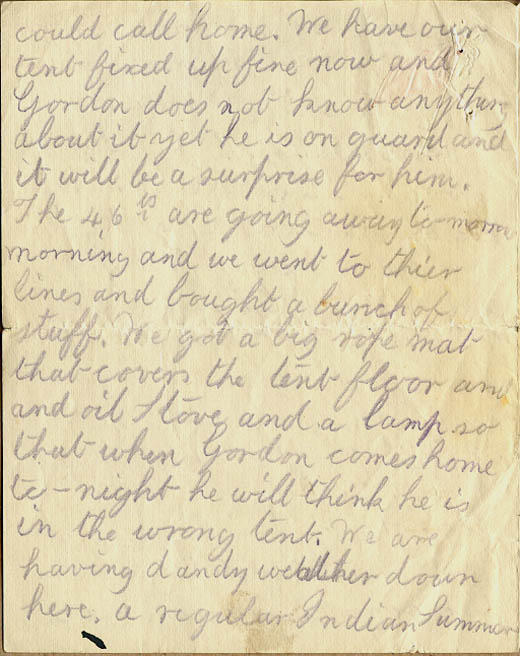 could call home. We have our
tent fixed up fine now and
Gordon does not know anything
about it yet he is on guard and
it will be a surprise for him.
The 46th are going away to-morrow
morning and we went to thier
lines and bought a bunch of
stuff. We got a big rope mat
that covers the tent floor and
and oil stove and a lamp so
that when Gordon comes home
to-night he will think he is
in the wrong tent. We are
having dandy weather down
here. a regular Indian Summer